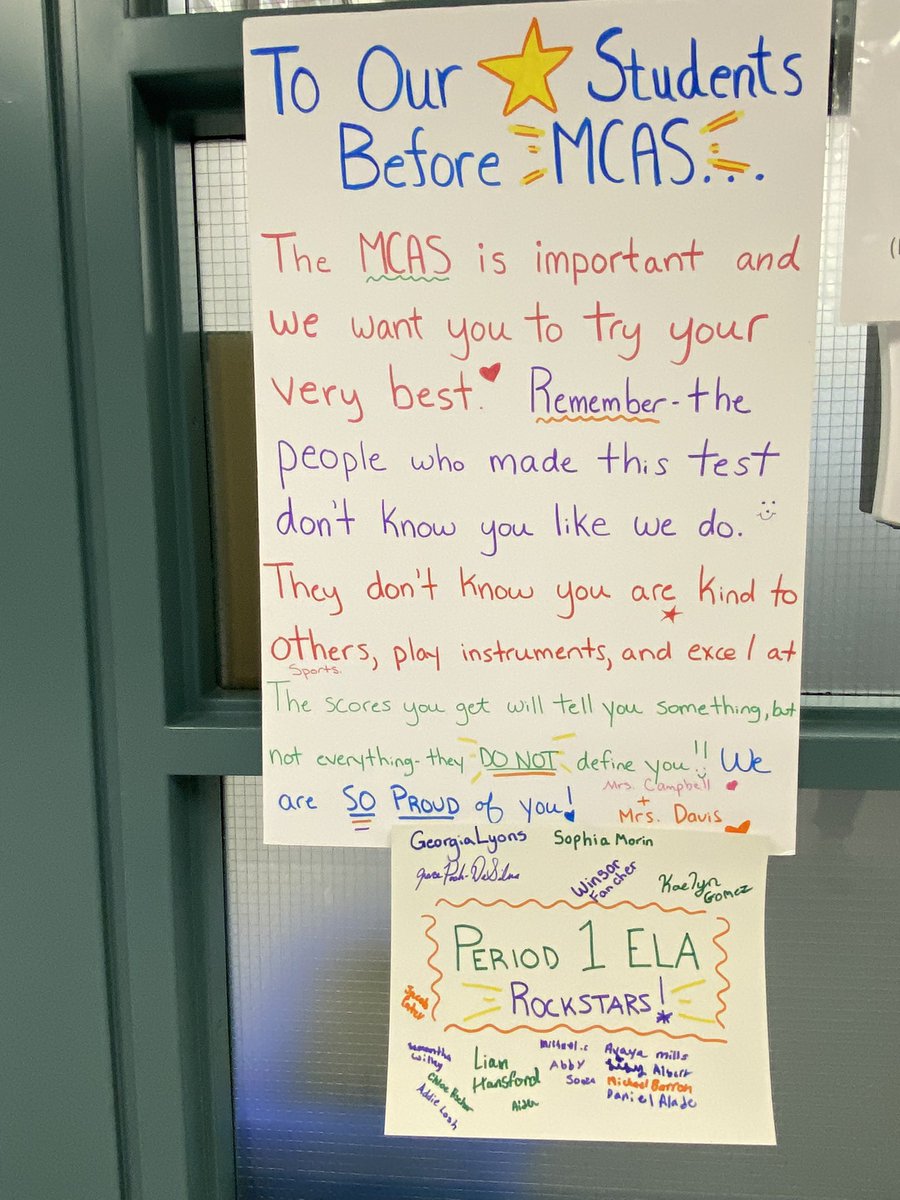 To Our Students
Before MCAS...
The MCAS is important and
we want you to try your
very best. Remember-the
people who made this test
don't know you like we do.
They don't know you are kind to
others, play instruments, and excel at
Sports.
The scores you get will tell you something, but
not everything-they DO NOT define you!! We
are SO PROUD of you!
Mrs. Campbell
+
Mrs. Davis
Georgia Lyons
Sophia Morin
Winsor
Fancher
Kaelyn
Gomez
PERIOD 1 ELA
ROCKSTARS!
Samantha
Willey
Lian
Hansford
Michael.c
Abby
Sousa
Avaya mills
Albert
Michael Barron
Daniel Alade
Chloe
Addie
Aiden